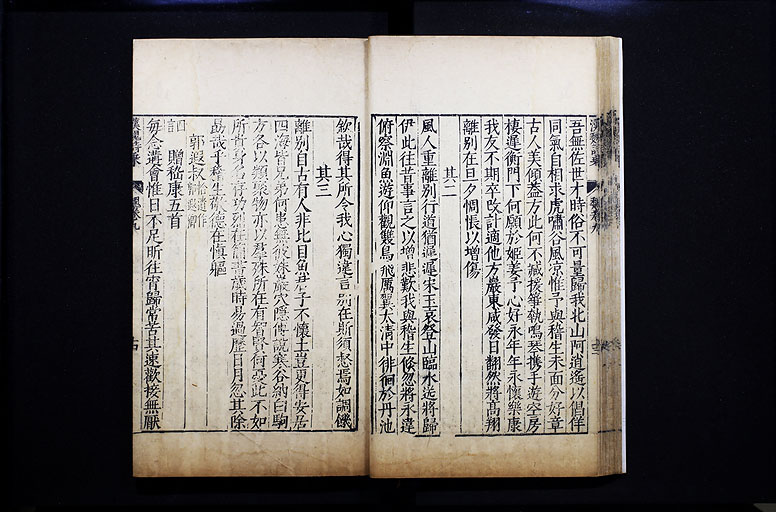 吾無佐世才時俗不可量歸我北山阿逍遙以倡佯
同氣自相求虎嘯谷風涼惟予與嵇生未面分好章
古人美傾蓋方此何不臧援箏執鳴琴携手遊空房
棲遲衡門下何願於姬姜予心好永年年永懷樂康
我友不期卒改計適他方嚴東咸發日翻然將高翔
離別在旦夕惆悵以增傷
其二
風人重離別行道猶遲遲宋玉哀登山臨水送將歸
伊此往昔事言之以增悲歎我與嵇生倏忽將永違
俯察淵魚遊仰觀雙鳥飛厲翼太清中徘徊於丹池
欽哉得其所令我心獨違言別在斯須惄焉如調饑
其三
離別自古有人非比目魚君子不懷土豈更得安居
四海皆兄弟何患無彼姝巖穴隱傅說寒谷納白駒
方各以類聚物亦以羣殊所在有智賢何憂此不如
所貴身名存功烈在簡書歲時易過歷日月忽其除
勗哉乎嵇生敬德在慎軀
郭遐叔
贈嵇康五首
每念遘會惟日不足昕往宵歸常苦其速歡接無厭